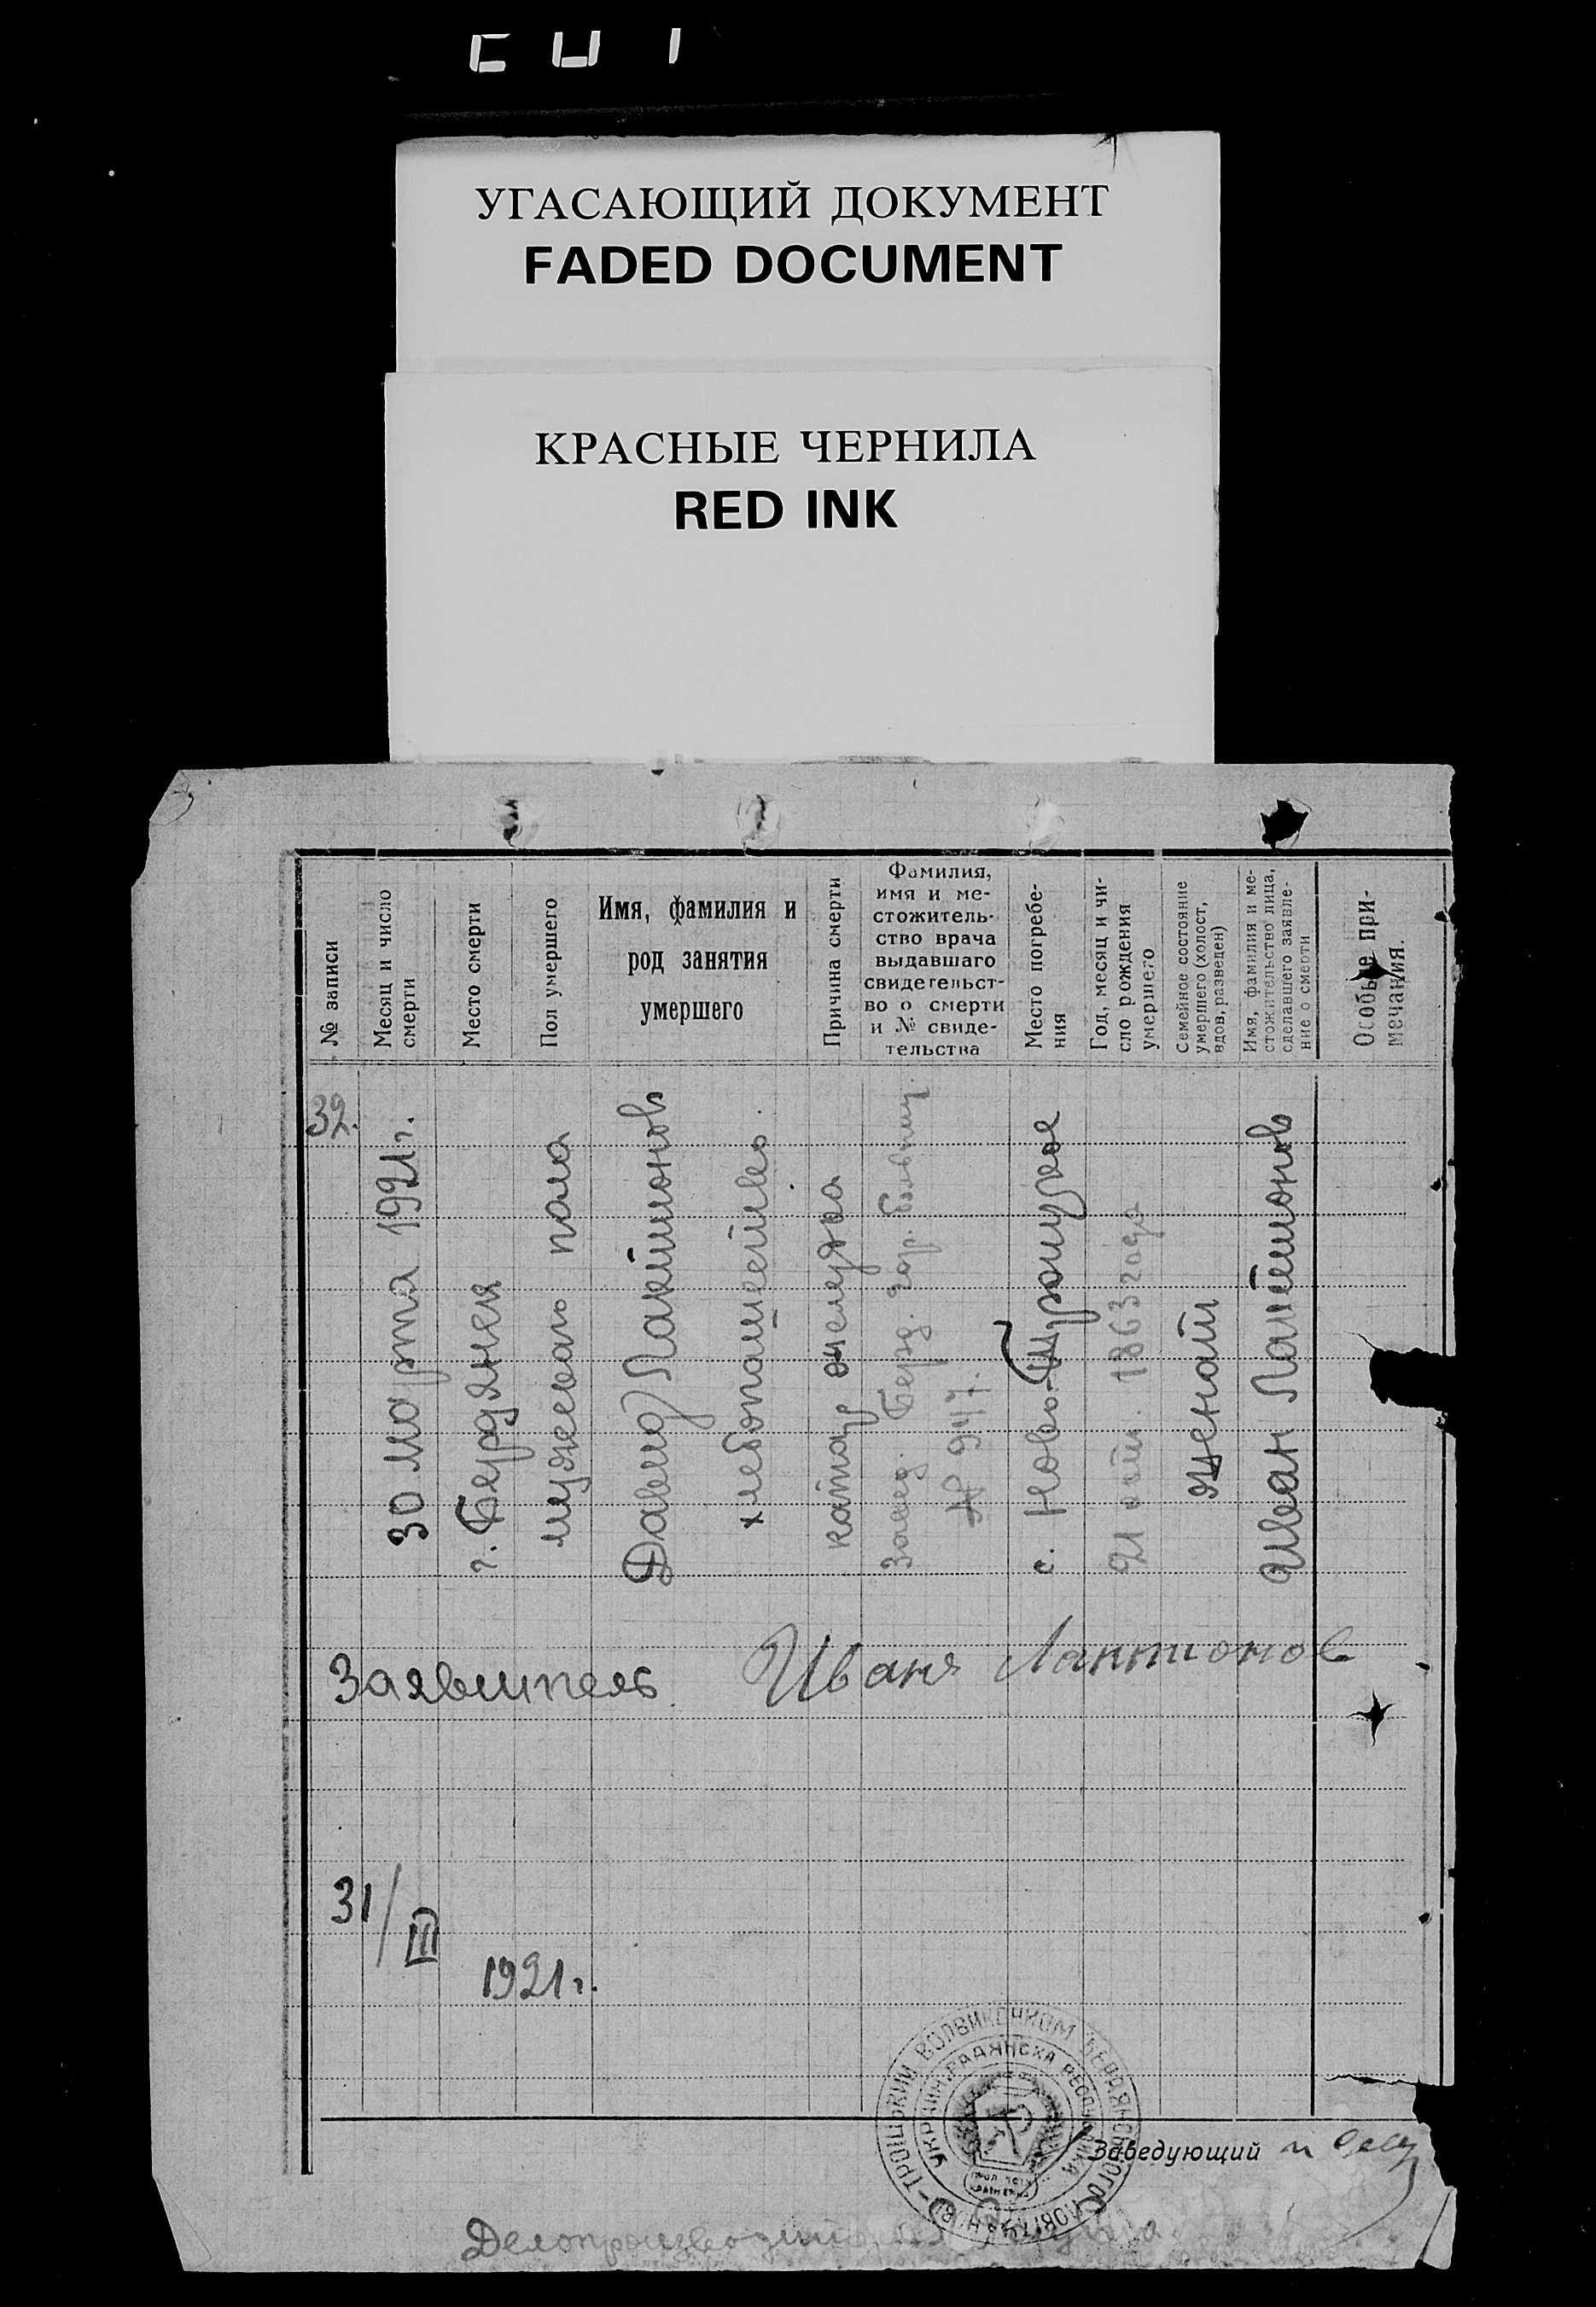 УГАСАЮЩИЙ ДОКУМЕНТ
FADED DOCUMENT
КРАСНЫЕ ЧЕРНИЛА
RED INK
№ записи
Месяц и число
смерти
Место смерти
Пол умершего
Имя, фамилия и
род занятия
умершего
Причина смерти
Фамилия,
имя и ме-
стожитель-
ство врача
выдавшаго
свидетельст-
во о смерти
и № свиде-
тельства
Место погребе-
ния
Год, месяц и чи-
сло рождения
умершего
Семейное состояние
умершего (холост,
вдов, разведен)
Имя, фамилия и ме-
стожительство лица,
сделавшего заявле-
ние о смерти
Особые при-
мечания.
32.
30 марта 1921 г.
г. Бердянск
мужского пола
Давид Лактионов
хлебопашество.
катар желудка
Завед. Берд. гор. больниц.
№ 947.
с. Ново-Троицкое
21 1863 года
женат
Иван Лактионов
Заявитель Иван Лактионов
31/III
1921 г.
НОВО-ТРОІЦЬКИЙ ВОЛВИКОНКОМ БЕРДЯНСЬКОГО ПОВІТУ
УКРАЇН. РАДЯНСКА РЕСПУБЛІКА
Заведующий
Делопроизводитель